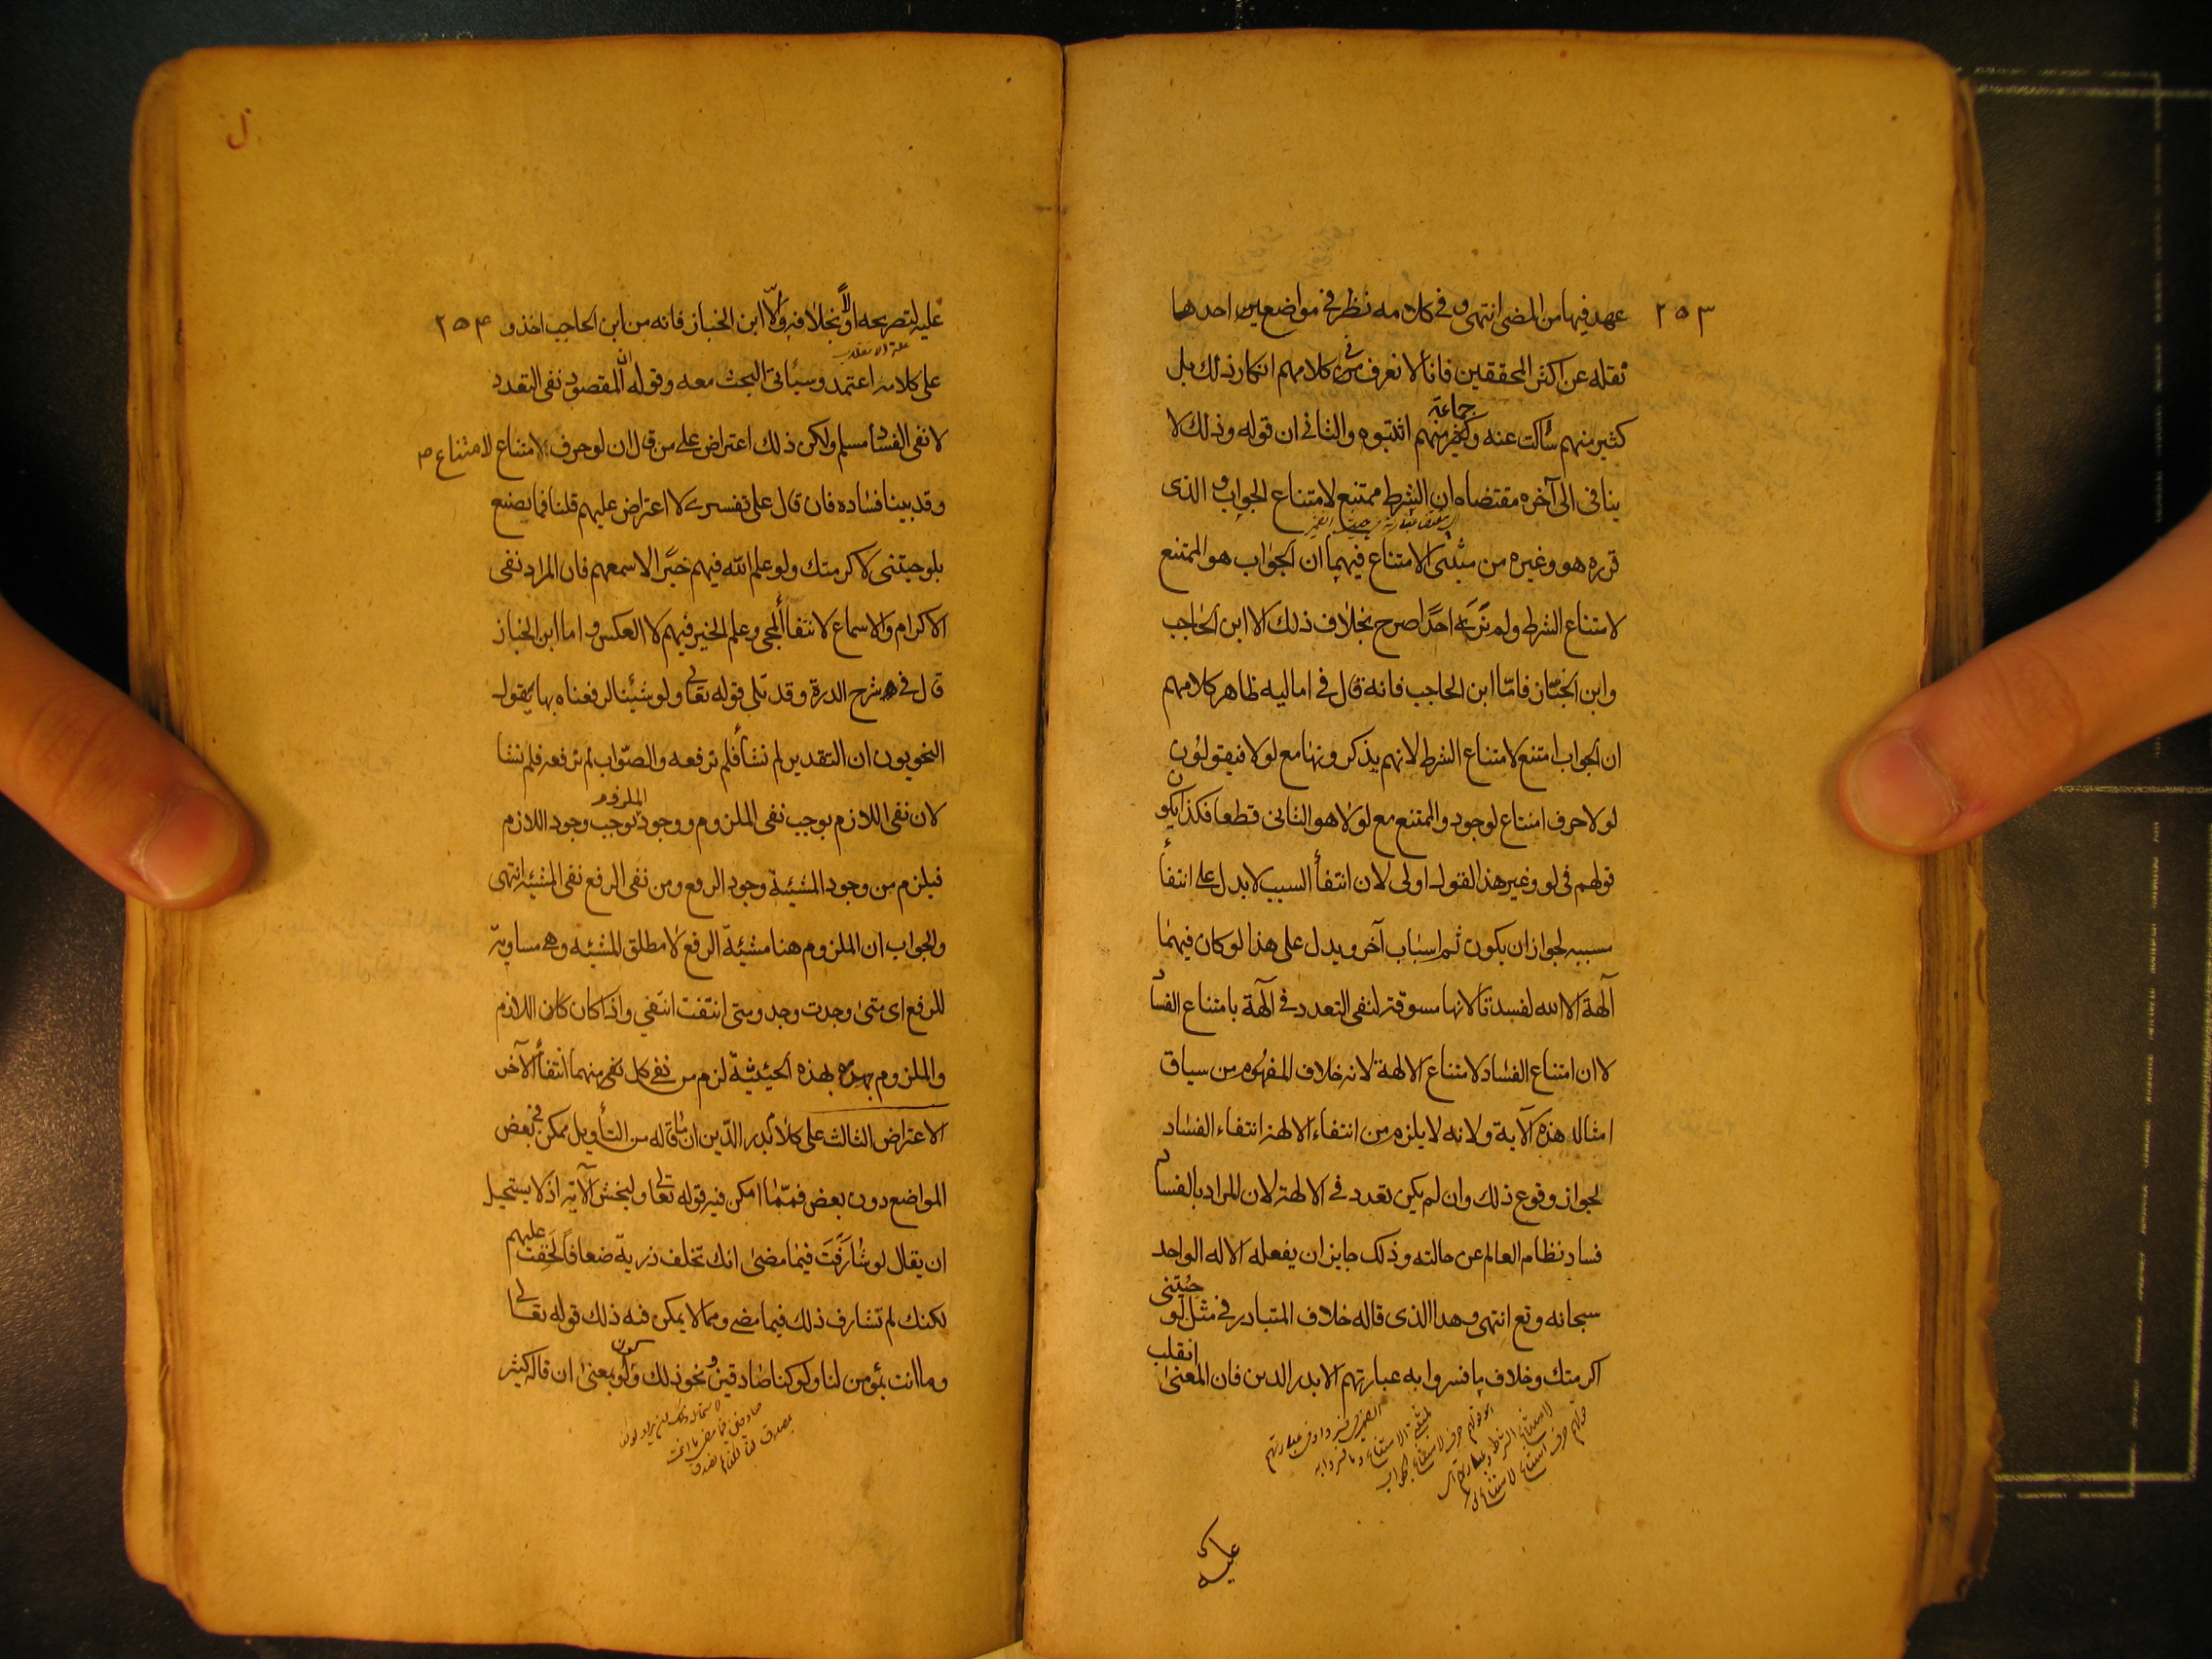 ٢٥٣
عهد فيها من المضى انتهى وفى كلامه نظر فى مواضعين احدها
نقله عن اكثر المحققين فانا لا نعرف من فى كلامهم انكار ذلك بل
كثير منهم ساكت عنه وكثير جماعة منهم اثبتوه والثانى ان قوله وذلك لا
ينافى الى آخره مقتضاه ان الشرط ممتنع لامتناع الجواب والذى
قرره هو وغيره من مثبتى الامتناع فيهما ان الجواب هو الممتنع
لامتناع الشرط ولم نر احدًا صرح بخلاف ذلك الا ابن الحاجب
وابن الخباز فامّا ابن الحاجب فانه قال فى اماليه ظاهر كلامهم
ان الجواب امتنع لامتناع الشرط لانهم يذكرونها مع لولا فيقولون
لولا حرف امتناع لوجود والممتنع مع لولا هو الثانى قطعا فكذا يكون
قولهم فى لو وغير هذا القول اولى لان انتفأ السبب لا يدل على انتفأ
مسببه لجواز ان يكون ثم اسباب آخر ويدل على هذا لو كان فيهما
آلهة الا الله لفسدتا لانها مسوقة لنفى التعدد فى آلهة بامتناع الفساد
لا ان امتناع الفساد لامتناع الالهة لانه خلاف المفهوم من سياق
امثال هذه الآية ولانه لا يلزم من انتفاء الالهة انتفاء الفساد
لجواز وقوع ذلك وان لم يكن تعدد فى الالهة لان المراد بالفساد
فساد نظام العالم عن حالته وذلك جايز ان يفعله الاله الواحد
سبحانه وتع انتهى وهذا الذى قاله خلاف المتبادر فى مثل لو جئتنى
اكرمتك وخلاف ما فسروا به عبارتهم الا بدر الدين فان المعنى انقلب
عليه
ل
عليه لتصريحه اولًا بخلافه والّا ابن الخباز فانه من ابن الحاجب اخذ و
٢٥٤
على كلامه اعتمد وسيأتى البحث معه وقوله ان المقصود نفى التعدد
لا نفى الفساد مسلم ولكن ذلك اعتراض على من قال ان لو حرف امتناع لامتناع
وقد بينا فساده فان قال على تفسيرى لا اعتراض عليهم قلنا فما يصنع
بلو جئتنى لاكرمتك ولو علم الله فيهم خيرًا لاسمعهم فان المراد نفى
الاكرام والاسماع لانتفأ المجى وعلم الخير فيهم لا العكس واما ابن الخباز
قال فى شرح الدرة وقد تلى قوله تعالى ولو شئنا لرفعناه بها يقول
النحويون ان التقدير لم نشأ فلم نرفعه والصّواب لم نرفعه فلم نشا
لان نفى اللازم يوجب نفى الملزوم ووجود الملزوم يوجب وجود اللازم
فيلزم من وجود المشيئة وجود الرفع ومن نفى الرفع نفى المشيئه انتهى
والجواب ان الملزوم هنا مشيئة الرفع لا مطلق المشيئه وهى مساوية
للرفع اى متى وجدت وجد ومتى انتفت انتفى واذا كان كان اللازم
والملزوم بهذه الحيثية لزم من نفى كل نفى منهما انتفأ الآخر
الاعتراض الثالث على كلام بدر الدّين ان ما قاله من التأويل ممكن فى بعض
المواضع دون بعض فممّا امكن فيه قوله تعالى وليخش الآية اذ لا يستحيل
ان يقال لو شارفت فيما مضى انك تخلف ذرية ضعافًا لخفت عليهم
لكنك لم تشارف ذلك فيما مضى ومما لا يمكن فيه ذلك قوله تعالى
وما انت بمؤمن لنا ولو كنا صادقين ونحو ذلك وكون لو بمعنى ان قاله كثير